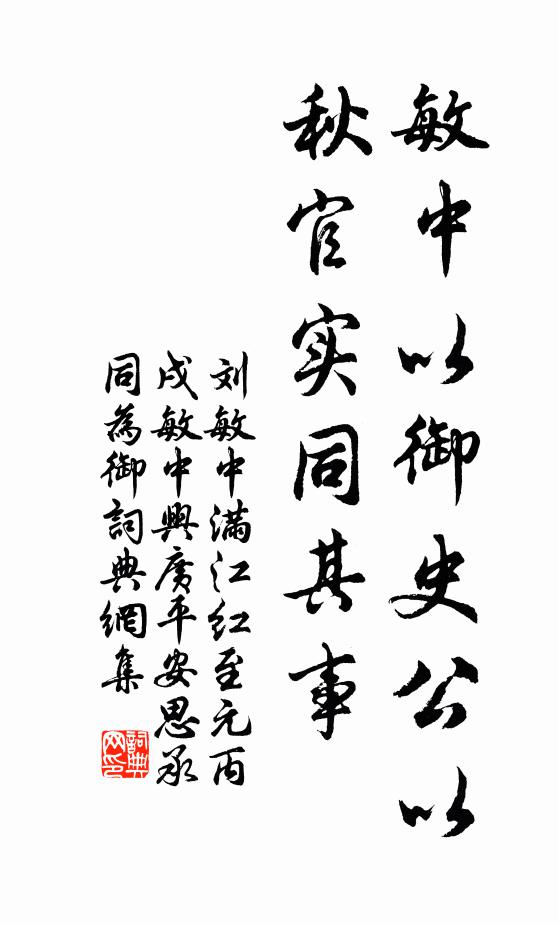 敏中以御史公以
秋官实同其事
刘敏中满江红至元丙
戌敏中與廣平安思承
同為御詞典網集
詞典
网印